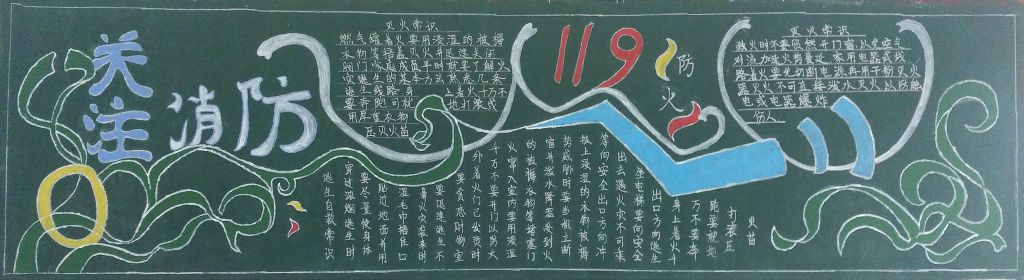 关注
消防
灭火常识
燃气着火要用浸湿的被褥
衣物等捂盖灭火并迅速关闭
阀门家庭成员平时就要了解火
灾逃生的基本方法熟悉几条
逃生线路身上着火千万不
要奔跑可就地打滚或
用厚重衣物
压灭火苗
119
防火
灭火常识
救火时不要贸然开门窗以免空气
对流加速火势蔓延家用电器或线
路着火要先切断电源再用干粉灭火
器灭火不可直接泼水灭火以防触
电或电器爆炸
伤人
逃生自救常识
穿过浓烟逃生时
要尽量使身体
贴近地面并用
湿毛巾捂住口
鼻火灾袭来时
要迅速逃生不
要贪恋财物室
外着火门已发烫时
千万不要开门以防大
火窜入室内要用浸湿
的被褥衣物等堵塞门
窗并泼水降温受到火
势威胁时要当机立断
披上浸湿的衣物被褥
等向安全出口方向冲
出去遇火灾不可乘
坐电梯要向安全
出口方向逃生
身上着火千
万不要奔
跑要就地
打滚压
火苗